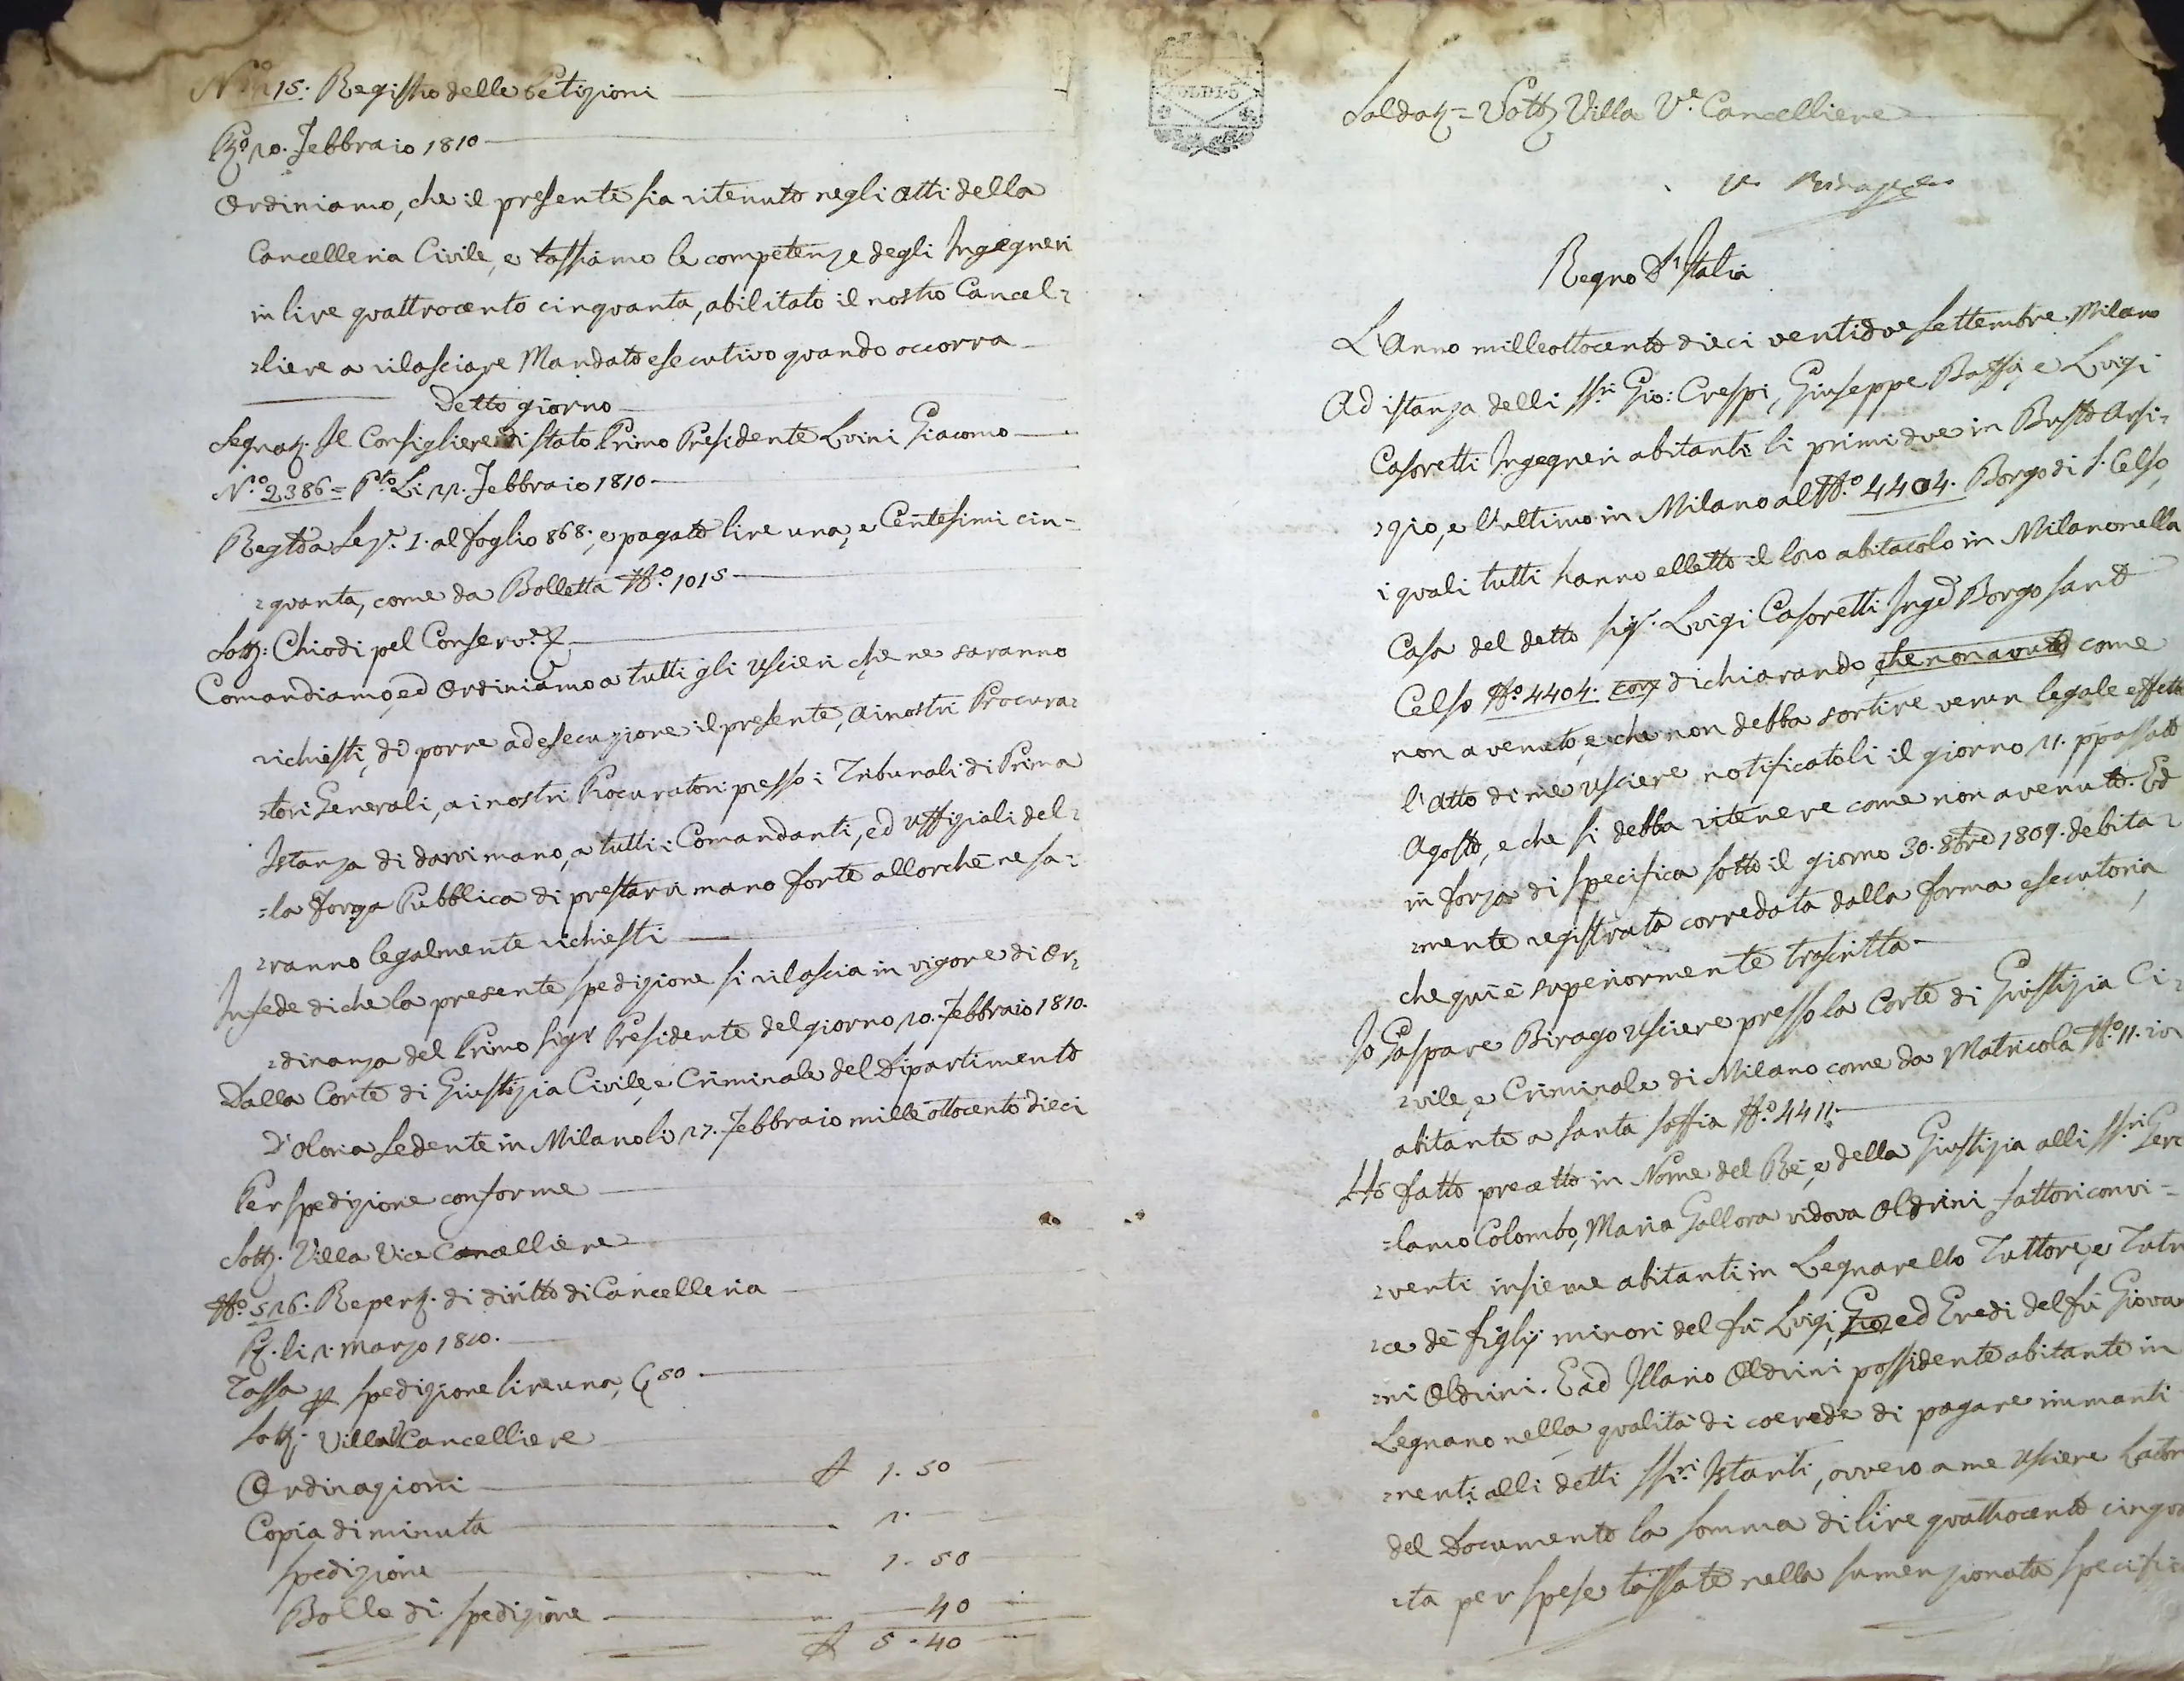 15. Registro delle Petizioni
20. Febbraio 1810
Ordiniamo, che il presente sia ritenuto negli Atti della
Cancelleria Civile, e tassiamo le competenze degli Ingegneri
in lire quattrocento cinquanta, abilitato il nostro Cancel=
=liere a rilasciare Mandato esecutivo quando occorra
Detto giorno
Segnaz. Il Consigliere di Stato Primo Presidente Luini Giacomo
N.o 2386 = P.to Li 22. Febbraio 1810
Regto a Lez. I. al foglio 868:, e pagato lire una, e Centesimi cin=
=quanta, come da Bolletta N.o 1015
Sottz: Chiodi pel Conserv.re
Comandiamo, ed Ordiniamo a tutti gli Uscieri che ne saranno
richiesti, di porre ad esecuzione il presente, ai nostri Procura=
=tori Generali, ai nostri Procuratori presso i Tribunali di Prima
Istanza di darvi mano, a tutti i Comandanti, ed Uffiziali del=
=la Forza Pubblica di prestarvi mano forte allorchè ne sa=
=ranno legalmente richiesti
In fede di che la presente spedizione si rilascia in vigore di Or=
=dinanza del Primo Sigr Presidente del giorno 20. Febbraio 1810.
Dalla Corte di Giustizia Civile, e Criminale del Dipartimento
D'Olona Sedente in Milano li 27. Febbraio mille ottocento dieci
Per spedizione conforme
Sottz. Villa Vice Cancelliere
N.o 526. Reperz. di diritto di Cancelleria
li 2. Marzo 1810.
Tassa spedizione lire una, C 50
Sottz. Villa V Cancelliere
Ordinazioni 1. 50
Copia di minuta 2.
Spedizione 1. 50
Bollo di Spedizione 40
5. 40
SOLDI 5
Saldaz = Sottz Villa V.e Cancelliere
Regno D'Italia
L'Anno milleottocento dieci ventidue Settembre. Milano
Ad istanza delli ss.ri Gio: Crespi, Giuseppe Bossi, e Luigi
Casoretti Ingegneri abitanti li primi due in Busto Arsi=
=zio, e l'ultimo in Milano al N.o 4404. Borgo di S. Celso,
i quali tutti hanno elletto il loro abitacolo in Milano nella
Casa del detto Sigr. Luigi Casoretti Inge Borgo Santo
Celso N.o 4404. dichiarando, che non avuto come
non avenuto, e che non debba sortire verun legale effetto
l'Atto di me Usciere notificatoli il giorno 21. ppassato
Agosto, e che si debba ritenere come non avenuto. Ed
in forza di specifica sotto il giorno 30. 8bre 1809. debita=
=mente registrata corredata dalla forma esecutoria
che qui è superiormente trascritta
Io Gaspare Birago Usciere presso la Corte di Giustizia Ci=
=vile, e Criminale di Milano come da Matricola N.o 11.
abitante a Santa Soffia N.o 4411.
Hò fatto precetto in Nome del Rè, e della Giustizia alli ss.ri Gero
=lamo Colombo, Maria Gallora vidova Oldrini fattori convi=
=venti insieme abitanti in Legnarello Tuttore, e Tutri
=ce de figlj minori del fù Luigi, Gio ed Eredi del fù Giovan
=ni Oldrini. E ad Illario Oldrini possidente abitante in
Legnano nella qualità di coerede di pagare inmanti
=nenti alli detti ss.ri Istanti, ovvero a me Usciere Lator
del Documento la somma di lire quattrocento cinquan
=ta per spese tassate nella sumenzionata specifica